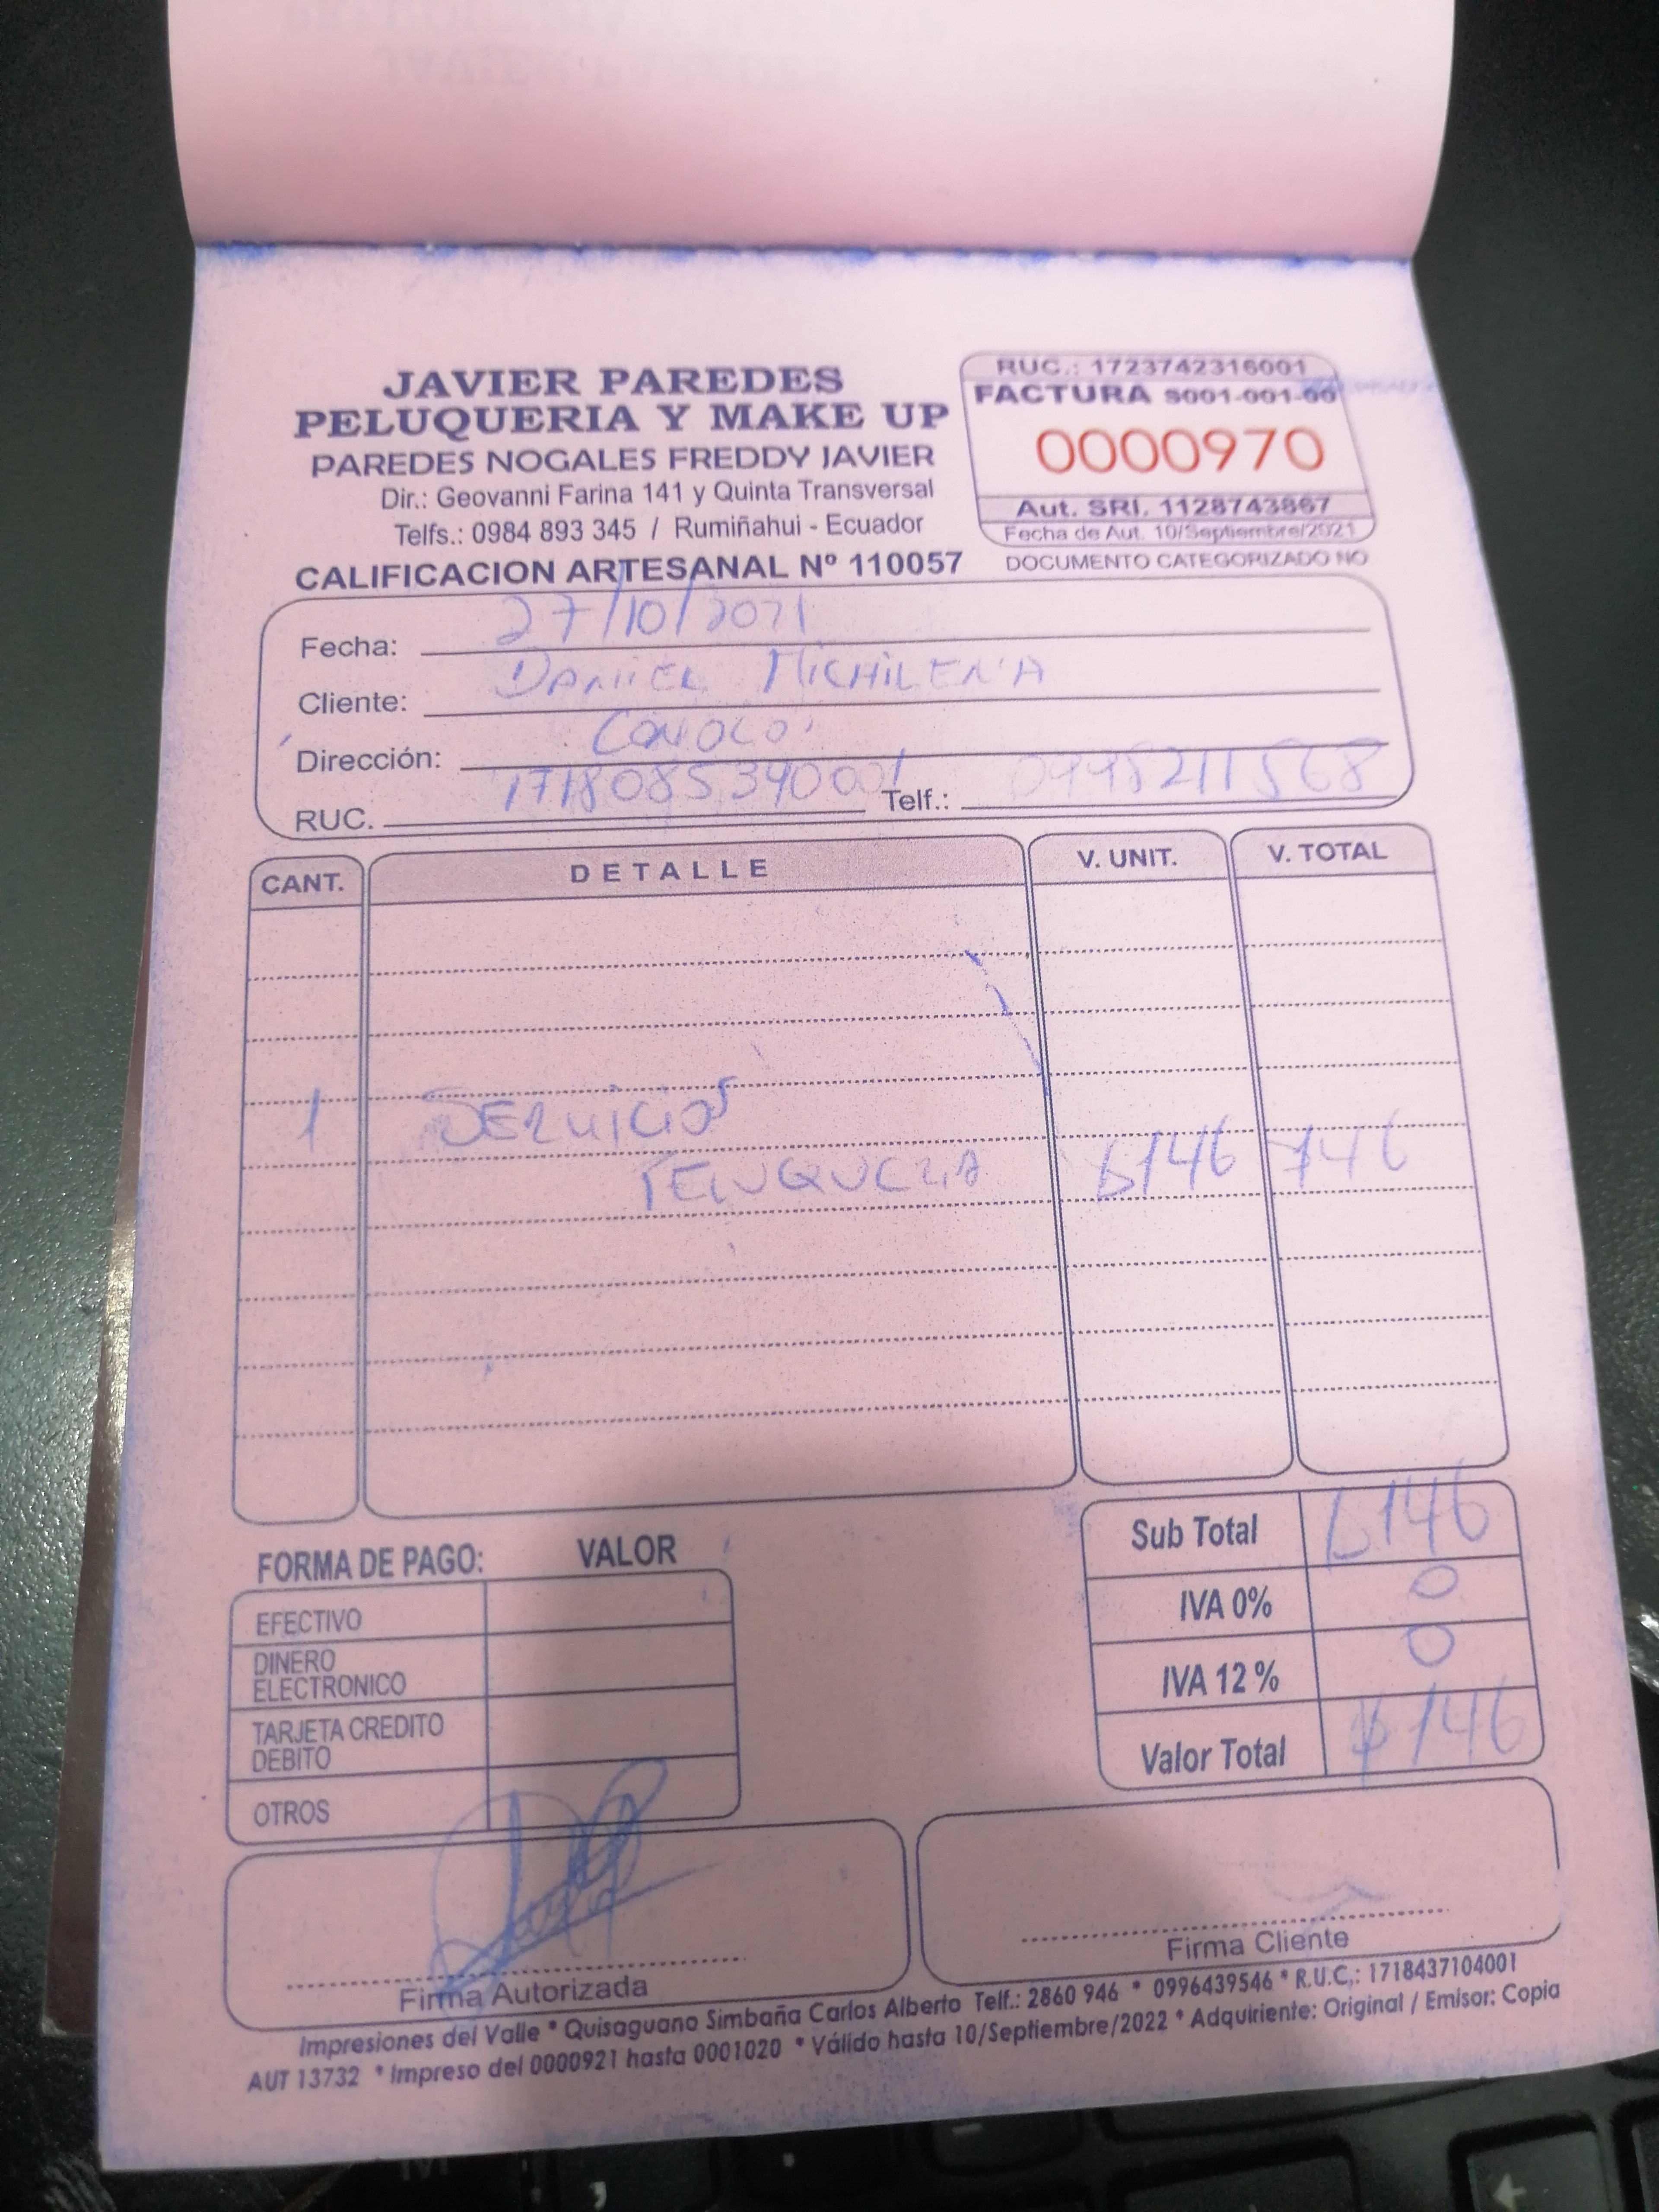 JAVIER PAREDES
PELUQUERIA Y MAKE UP
PAREDES NOGALES FREDDY JAVIER
Dir.: Geovanni Farina 141 y Quinta Transversal
Telfs.: 0984 893 345 / Rumiñahui - Ecuador
CALIFICACION ARTESANAL Nº 110057
RUC.: 1723742316001
FACTURA S001-001-00
0000970
Aut. SRI. 1128743867
Fecha de Aut. 10/Septiembre/2021
DOCUMENTO CATEGORIZADO NO
Fecha: 27/10/2021
Cliente: DANIEL MICHILENA
Dirección: CONOCO
RUC. 1718085390001 Telf.: 0998211568
CANT. DETALLE V. UNIT. V. TOTAL
1 SERVICIOS
PELUQUERIA $146 146
Sub Total $146
IVA 0% 0
IVA 12 % 0
Valor Total $146
FORMA DE PAGO: VALOR
EFECTIVO
DINERO
ELECTRONICO
TARJETA CREDITO
DEBITO
OTROS
Firma Autorizada
Firma Cliente
Impresiones del Valle * Quisaguano Simbaña Carlos Alberto Telf.: 2860 946 * 0996439546 * R.U.C,: 1718437104001
AUT 13732 * Impreso del 0000921 hasta 0001020 * Válido hasta 10/Septiembre/2022 * Adquiriente: Original / Emisor: Copia